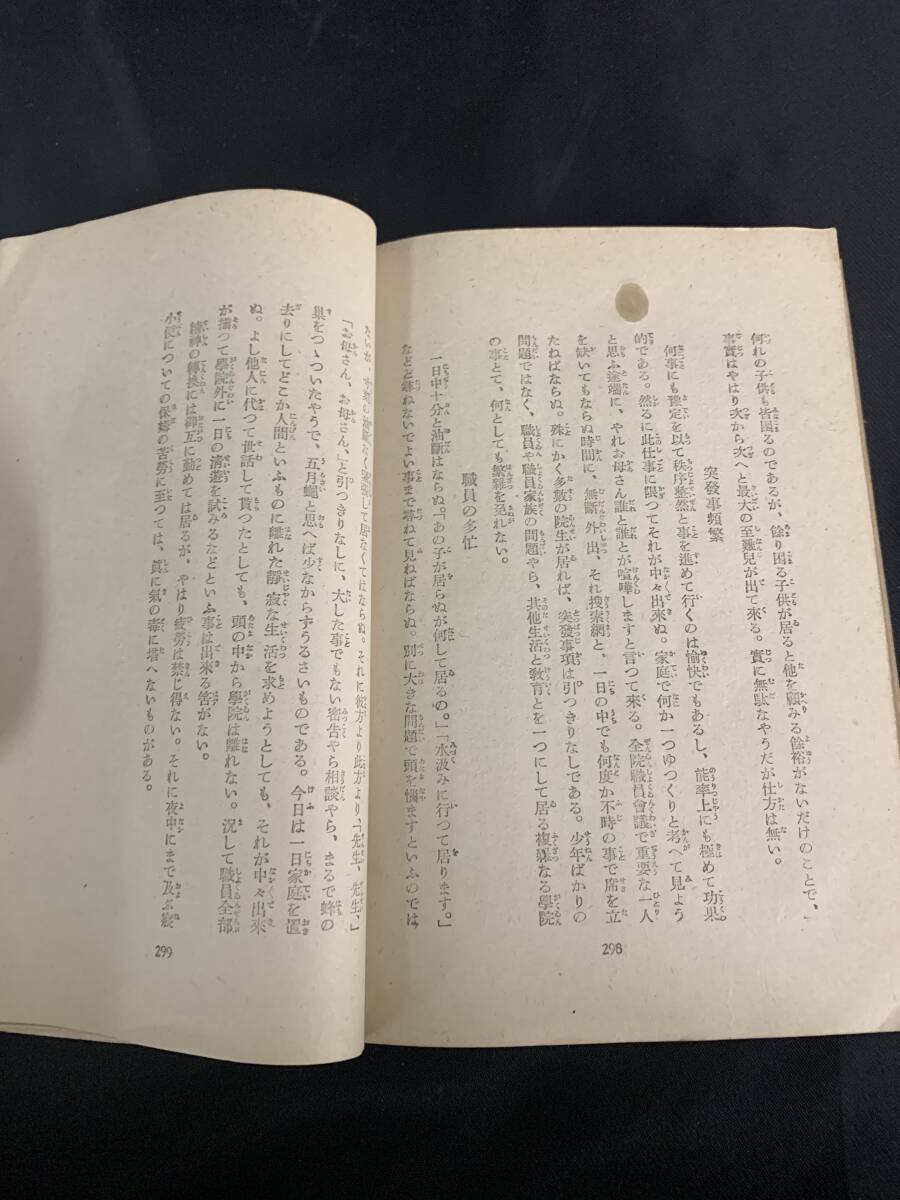 何れの子供も皆困るのであるが、餘り困る子供が居ると他を顧みる餘裕がないだけのことで、
事實はやはり次から次へと最大の至難兒が出て來る。實に無駄なやうだが仕方は無い。
突發事頻繁
何事にも豫定を以て秩序整然と事を進めて行くのは愉快でもあるし、能率上にも極めて功果
的である。然るに此仕事に限つてそれが中々出來ぬ。家庭で何か一つゆつくりと考へて見よう
と思ふ途端に、やれお母さん誰と誰とが喧嘩しますと言つて來る。全院職員會議で重要な一人
を缺いてもならぬ時間に、無斷外出、それ捜索網と、一日の中でも何度か不時の事で席を立
たねばならぬ。殊にかく多數の院生が居れば、突發事項は引つきりなしである。少年ばかりの
問題ではなく、職員や職員家族の問題やら、其他生活と敎育とを一つにして居る複雜なる學院
の事とて、何としても繁雜を免れない。
職員の多忙
一日中十分と油斷はならぬ。「あの子が居らぬが何して居るの。」「水汲みに行つて居ります。」
などと尋ねないでよい事まで尋ねて見ねばならぬ。別に大きな問題で頭を惱ますといふのでは
298
なく緊張して居なくてはならぬ。それに彼方より此方より、「先生、先生、」
「お母さん、お母さん、」と引つきりなしに、大した事でもない密告やら相談やら、まるで蜂の
巢をつゝついたやうで、五月蠅と思へば少なからずうるさいものである。今日は一日家庭を置
去りにしてどこか人間といふものに離れた靜寂な生活を求めようとしても、それが中々出來
ぬ。よし他人に代つて世話して貰つたとしても、頭の中から學院は離れない。況して職員全部
が揃つて學院外に一日の淸遊を試みるなどといふ事は出來る筈がない。
精神の轉換には御互に勤めては居るが、やはり疲勞は禁じ得ない。それに夜中にまで及ぶ寢
小便についての保姆の苦勞に至つては、眞に氣の毒に堪へないものがある。
299